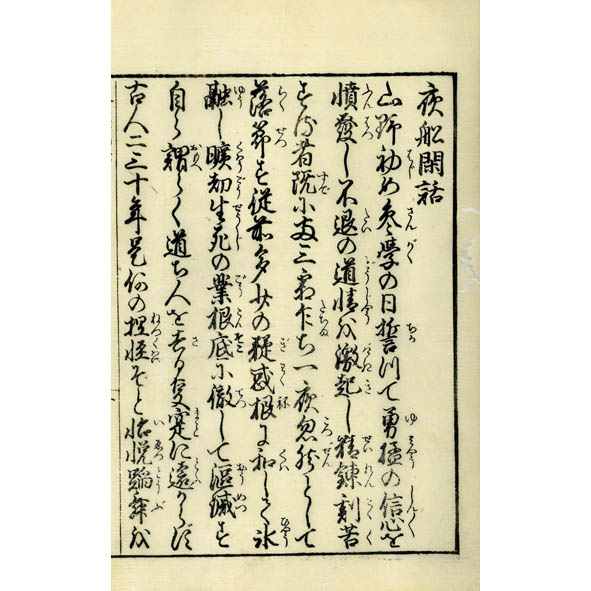 夜船閑話
山野初め参學の日誓つて勇猛の信心を
憤發し不退の道情を激起し精錬刻苦
する者既に両三霜乍ち一夜忽然として
落節す從前多少の疑惑根に和して氷
融し曠劫生死の業根底に徹して漚滅す
自ら謂らく道ち人を去る事寔に遠からず
古人二三十年是何の捏怪ぞと怡悦蹈舞を